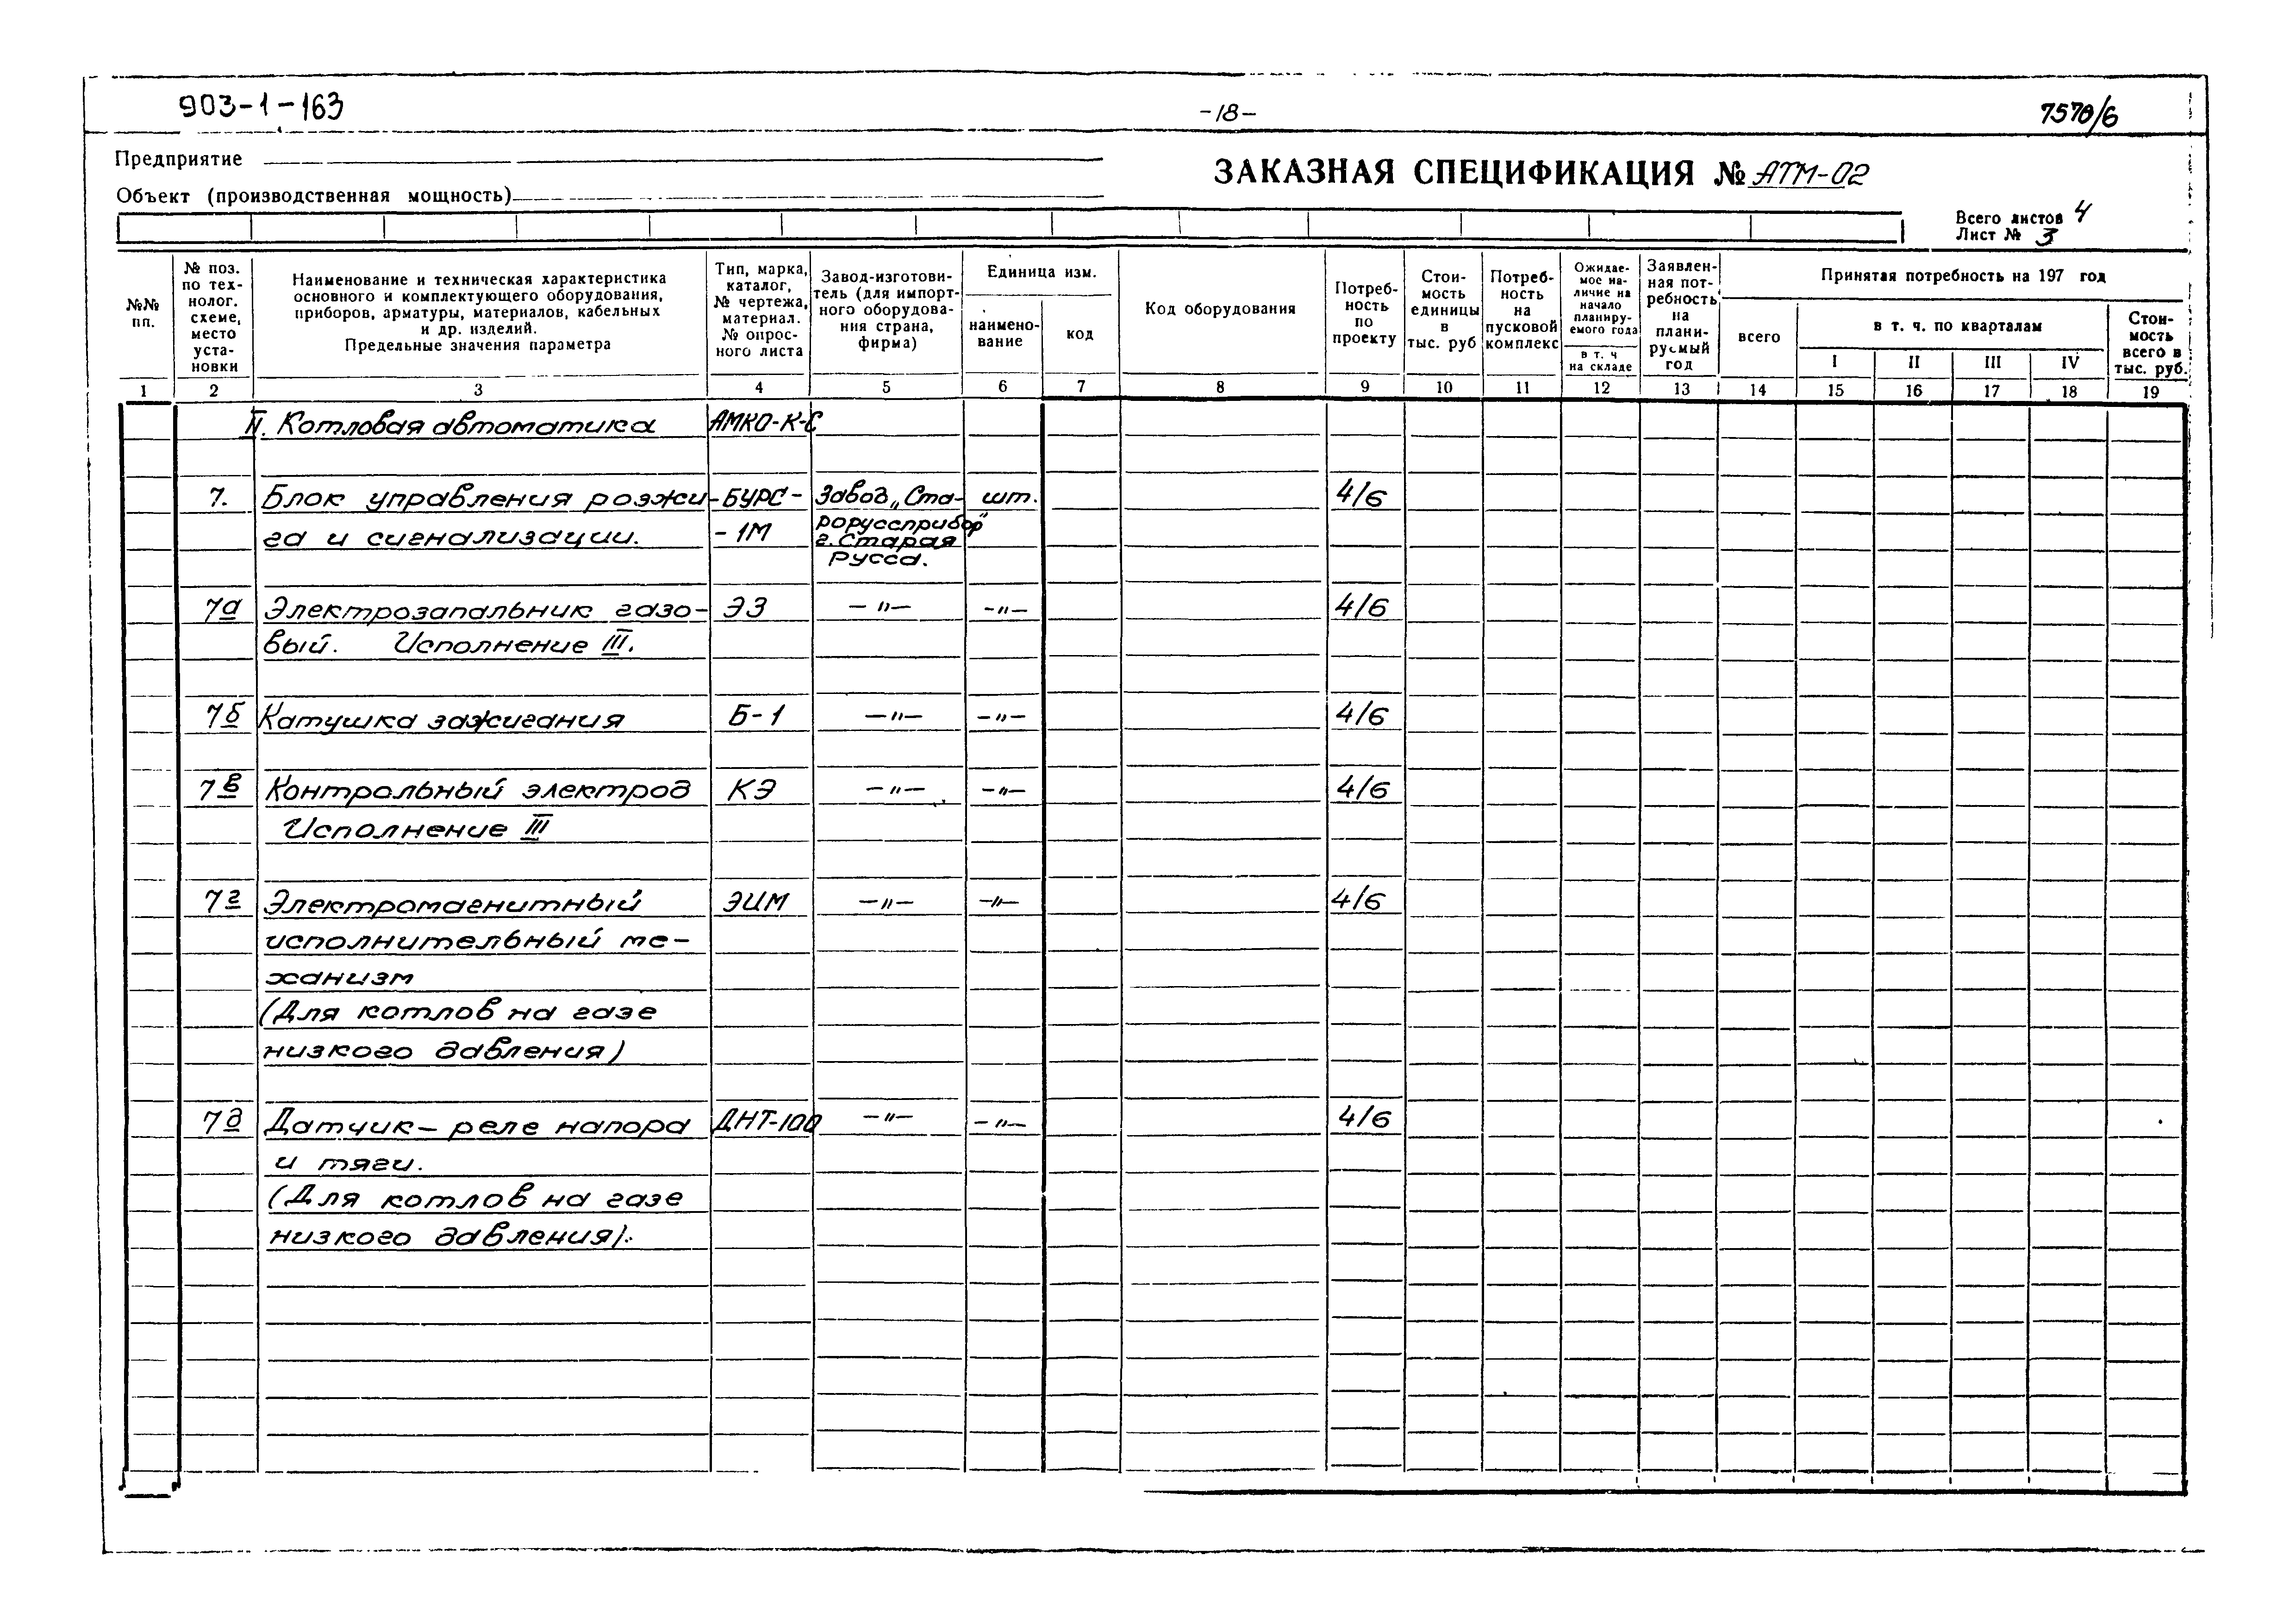 903-1-163
-18-
7578/6
Предприятие
ЗАКАЗНАЯ СПЕЦИФИКАЦИЯ № АТМ-02
Объект (производственная мощность)
Всего листов 4
Лист № 3
№№
пп.
№ поз.
по тех-
нолог.
схеме,
место
уста-
новки
Наименование и техническая характеристика
основного и комплектующего оборудования,
приборов, арматуры, материалов, кабельных
и др. изделий.
Предельные значения параметра
Тип, марка,
каталог,
№ чертежа,
материал.
№ опрос-
ного листа
Завод-изготови-
тель (для импорт-
ного оборудова-
ния страна,
фирма)
Единица изм.
наимено-
вание
код
Код оборудования
Потреб-
ность
по
проекту
Стои-
мость
единицы
в
тыс. руб
Потреб-
ность
на
пусковой
комплекс
Ожидае-
мое на-
личие на
начало
планиру-
емого года
в т. ч
на складе
Заявлен-
ная пот-
ребность
на
плани-
руемый
год
Принятая потребность на 197 год
всего
в т. ч. по кварталам
I II III IV
Стои-
мость
всего в
тыс. руб.
1 2 3 4 5 6 7 8 9 10 11 12 13 14 15 16 17 18 19
II. Котловая автоматика АМКО-К-С
7. Блок управления розжи- БУРС- Завод „Ста- шт. 4/6
га и сигнализации. -1М рорусприбор"
г. Старая
Русса.
7а Электрозапальник газо- ЭЗ -"- -"- 4/6
вый. Исполнение III.
7б Катушка зажигания Б-1 -"- -"- 4/6
7в Контрольный электрод КЭ -"- -"- 4/6
Исполнение III
7г Электромагнитный ЭИМ -"- -"- 4/6
исполнительный ме-
ханизм
(Для котлов на газе
низкого давления)
7д Датчик-реле напора ДНТ-100 -"- -"- 4/6
и тяги.
(Для котлов на газе
низкого давления).